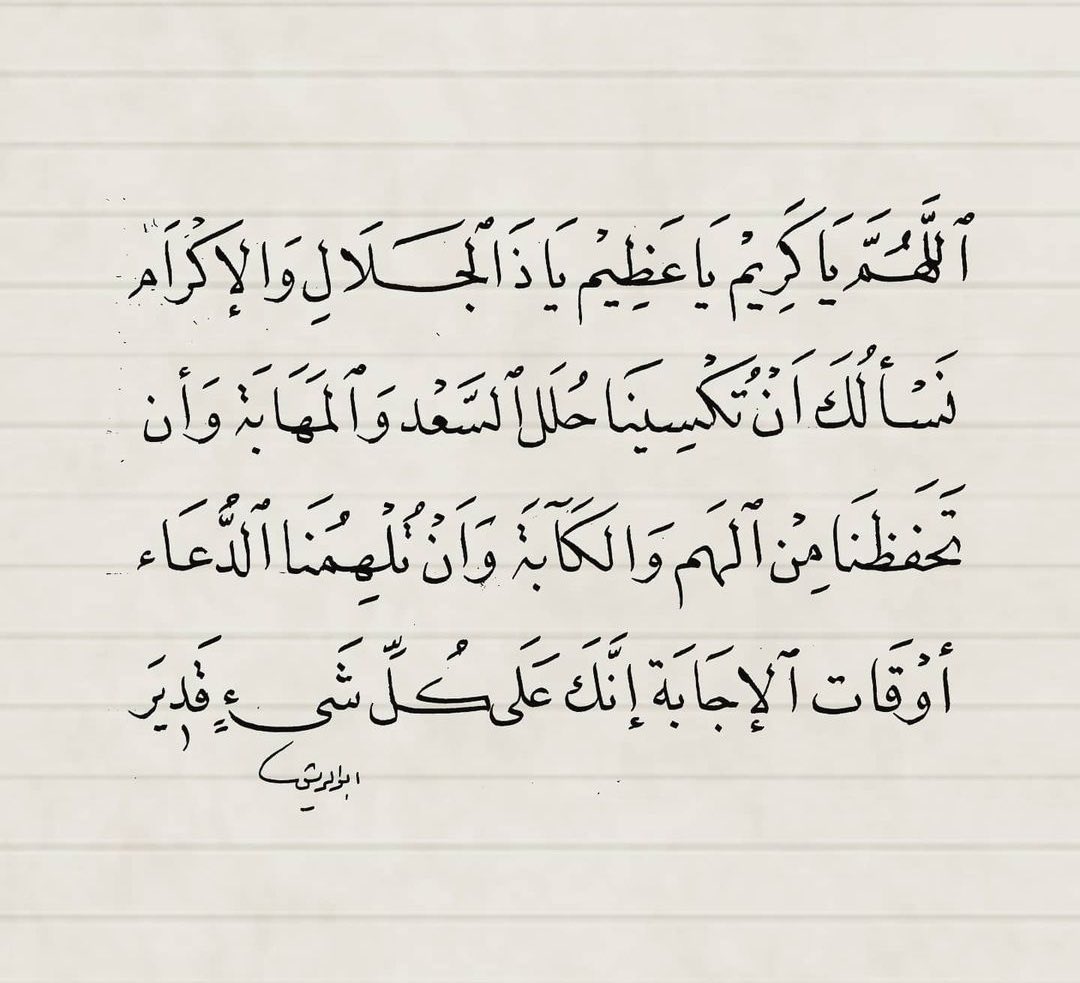 ٱللَّهُمَّ يَا كَرِيْمُ يَا عَظِيْم يَا ذَا ٱلْجَلَالِ وَالإِكْرَام
نَسْأَلُكَ اَنْ تُكْسِينَا حُلَل ٱلسَّعْد وَٱلمَهَابَة وَأن
تَحَفظَنَا مِنْ ٱلهَم وَالكَآبَة وَاَنْ تُلْهِمُنَا ٱلدُّعَاء
أوْقَات ٱلإجَابَة إنَّكَ عَلَى كُلِّ شَىءٍ قَدِيَر
ابوالريش